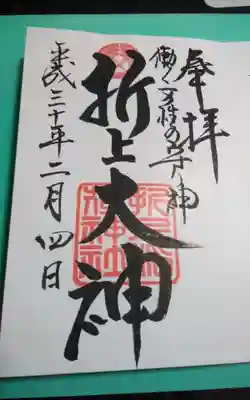 奉拝
働く女性の守り神
折上大神
平成三十年二月四日